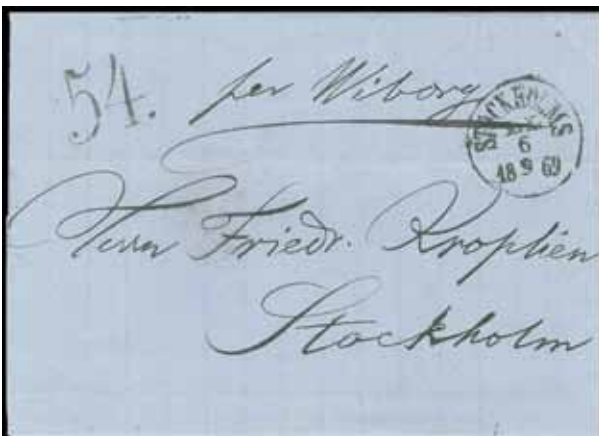 54.
per Wiborg
STOCKHOLMS
6
9
18 69
Herrn Friedr. Kroplien
Stockholm